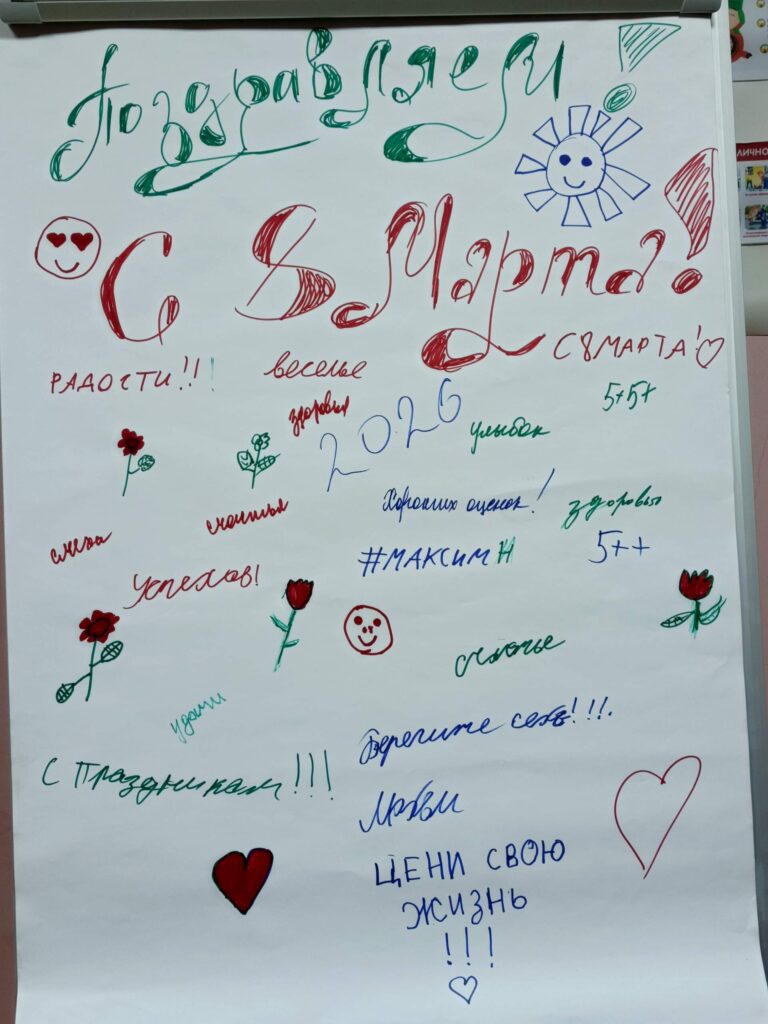 Поздравляем!
С 8 Марта!
РАДОСТИ!!!
веселье
С 8 МАРТА!
здоровья
2026
улыбок
5+5+
счастья
Хороших оценок!
здоровья
смеха
#МАКСИМН
5++
Успехов!
счастье
удачи
Берегите себя!!!!
С Праздникам!!!
Любви
ЦЕНИ СВОЮ
ЖИЗНЬ
!!!
ЛИЧНО